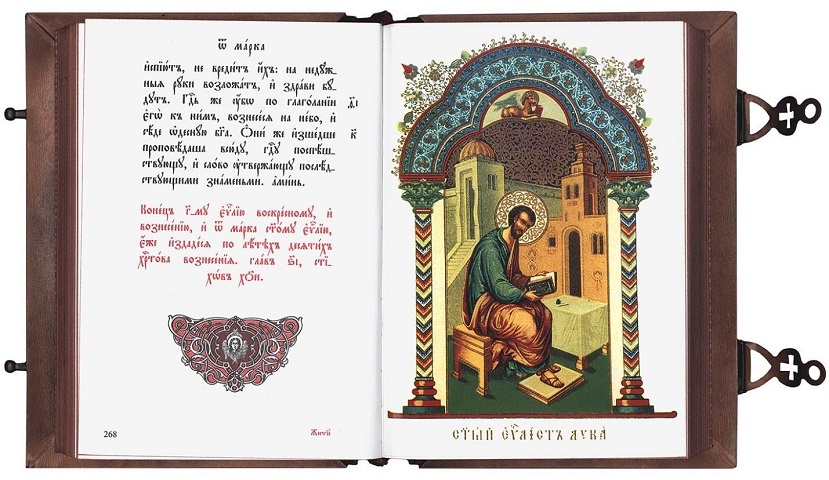 Ѿ ма́рка
и҆спїю́тъ, не вреди́тъ и҆́хъ: на недꙋ́ж-
ныѧ рꙋ́ки возложа́тъ, и҆ здра́ви бꙋ́-
дꙋтъ. Гдⷭ҇ь же ᲂу҆́бѡ по глаго́ланїи ѳ҃і
є҆гѡ̀ къ ни̑мъ, вознесе́сѧ на не́бо, и҆
сѣ́де ѡ҆деснꙋ́ю бг҃а. Ѻ҆ни́ же и҆зше́дше к҃
проповѣ́даша всю́дꙋ, гдⷭ҇ꙋ поспѣ́ш-
ствꙋющꙋ, и҆ сло́во ᲂу҆твержа́ющꙋ послѣ́д-
ствꙋющими зна́меньми. а҆ми́нь.
Коне́цъ г҃-мꙋ є҆ѵⷢ҇лїю воскре́сномꙋ, и҆
вознесе́нїю, и҆ ѿ ма́рка ст҃о́мꙋ є҆ѵⷢ҇лїю,
є҆́же и҆здаде́сѧ по лѣ́тѣхъ десѧти́хъ
хрⷭ҇то́ва вознесе́нїѧ. гла́въ ѕ҃і, сті-
хѡ́въ хо҃и.
268
ст҃ы́й є҆ѵⷢ҇лі́стъ лꙋка̀